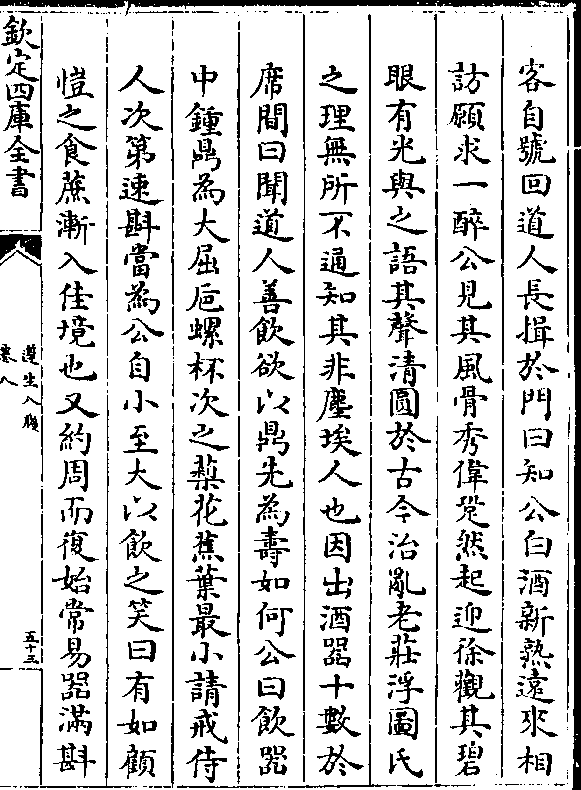 客自號回道人長揖於門曰知公白酒新熟遠來相
訪願求一醉公見其風骨秀偉跫然起迎徐觀其碧
眼有光與之語其聲清圓於古今治亂老莊浮圖氏
之理無所不通知其非塵埃人也因出酒器十數於
席間曰聞道人善飲欲以鼎先為壽如何公曰飲器
中鍾鼎為大屈巵螺杯次之梨花蕉葉最小請戒侍
人次第速斟當為公自小至大以飲之笑曰有如顧
愷之食蔗漸入佳境也又約周而復始常易器滿斟
欽定四庫全書
遵生八牋
卷八
五十三